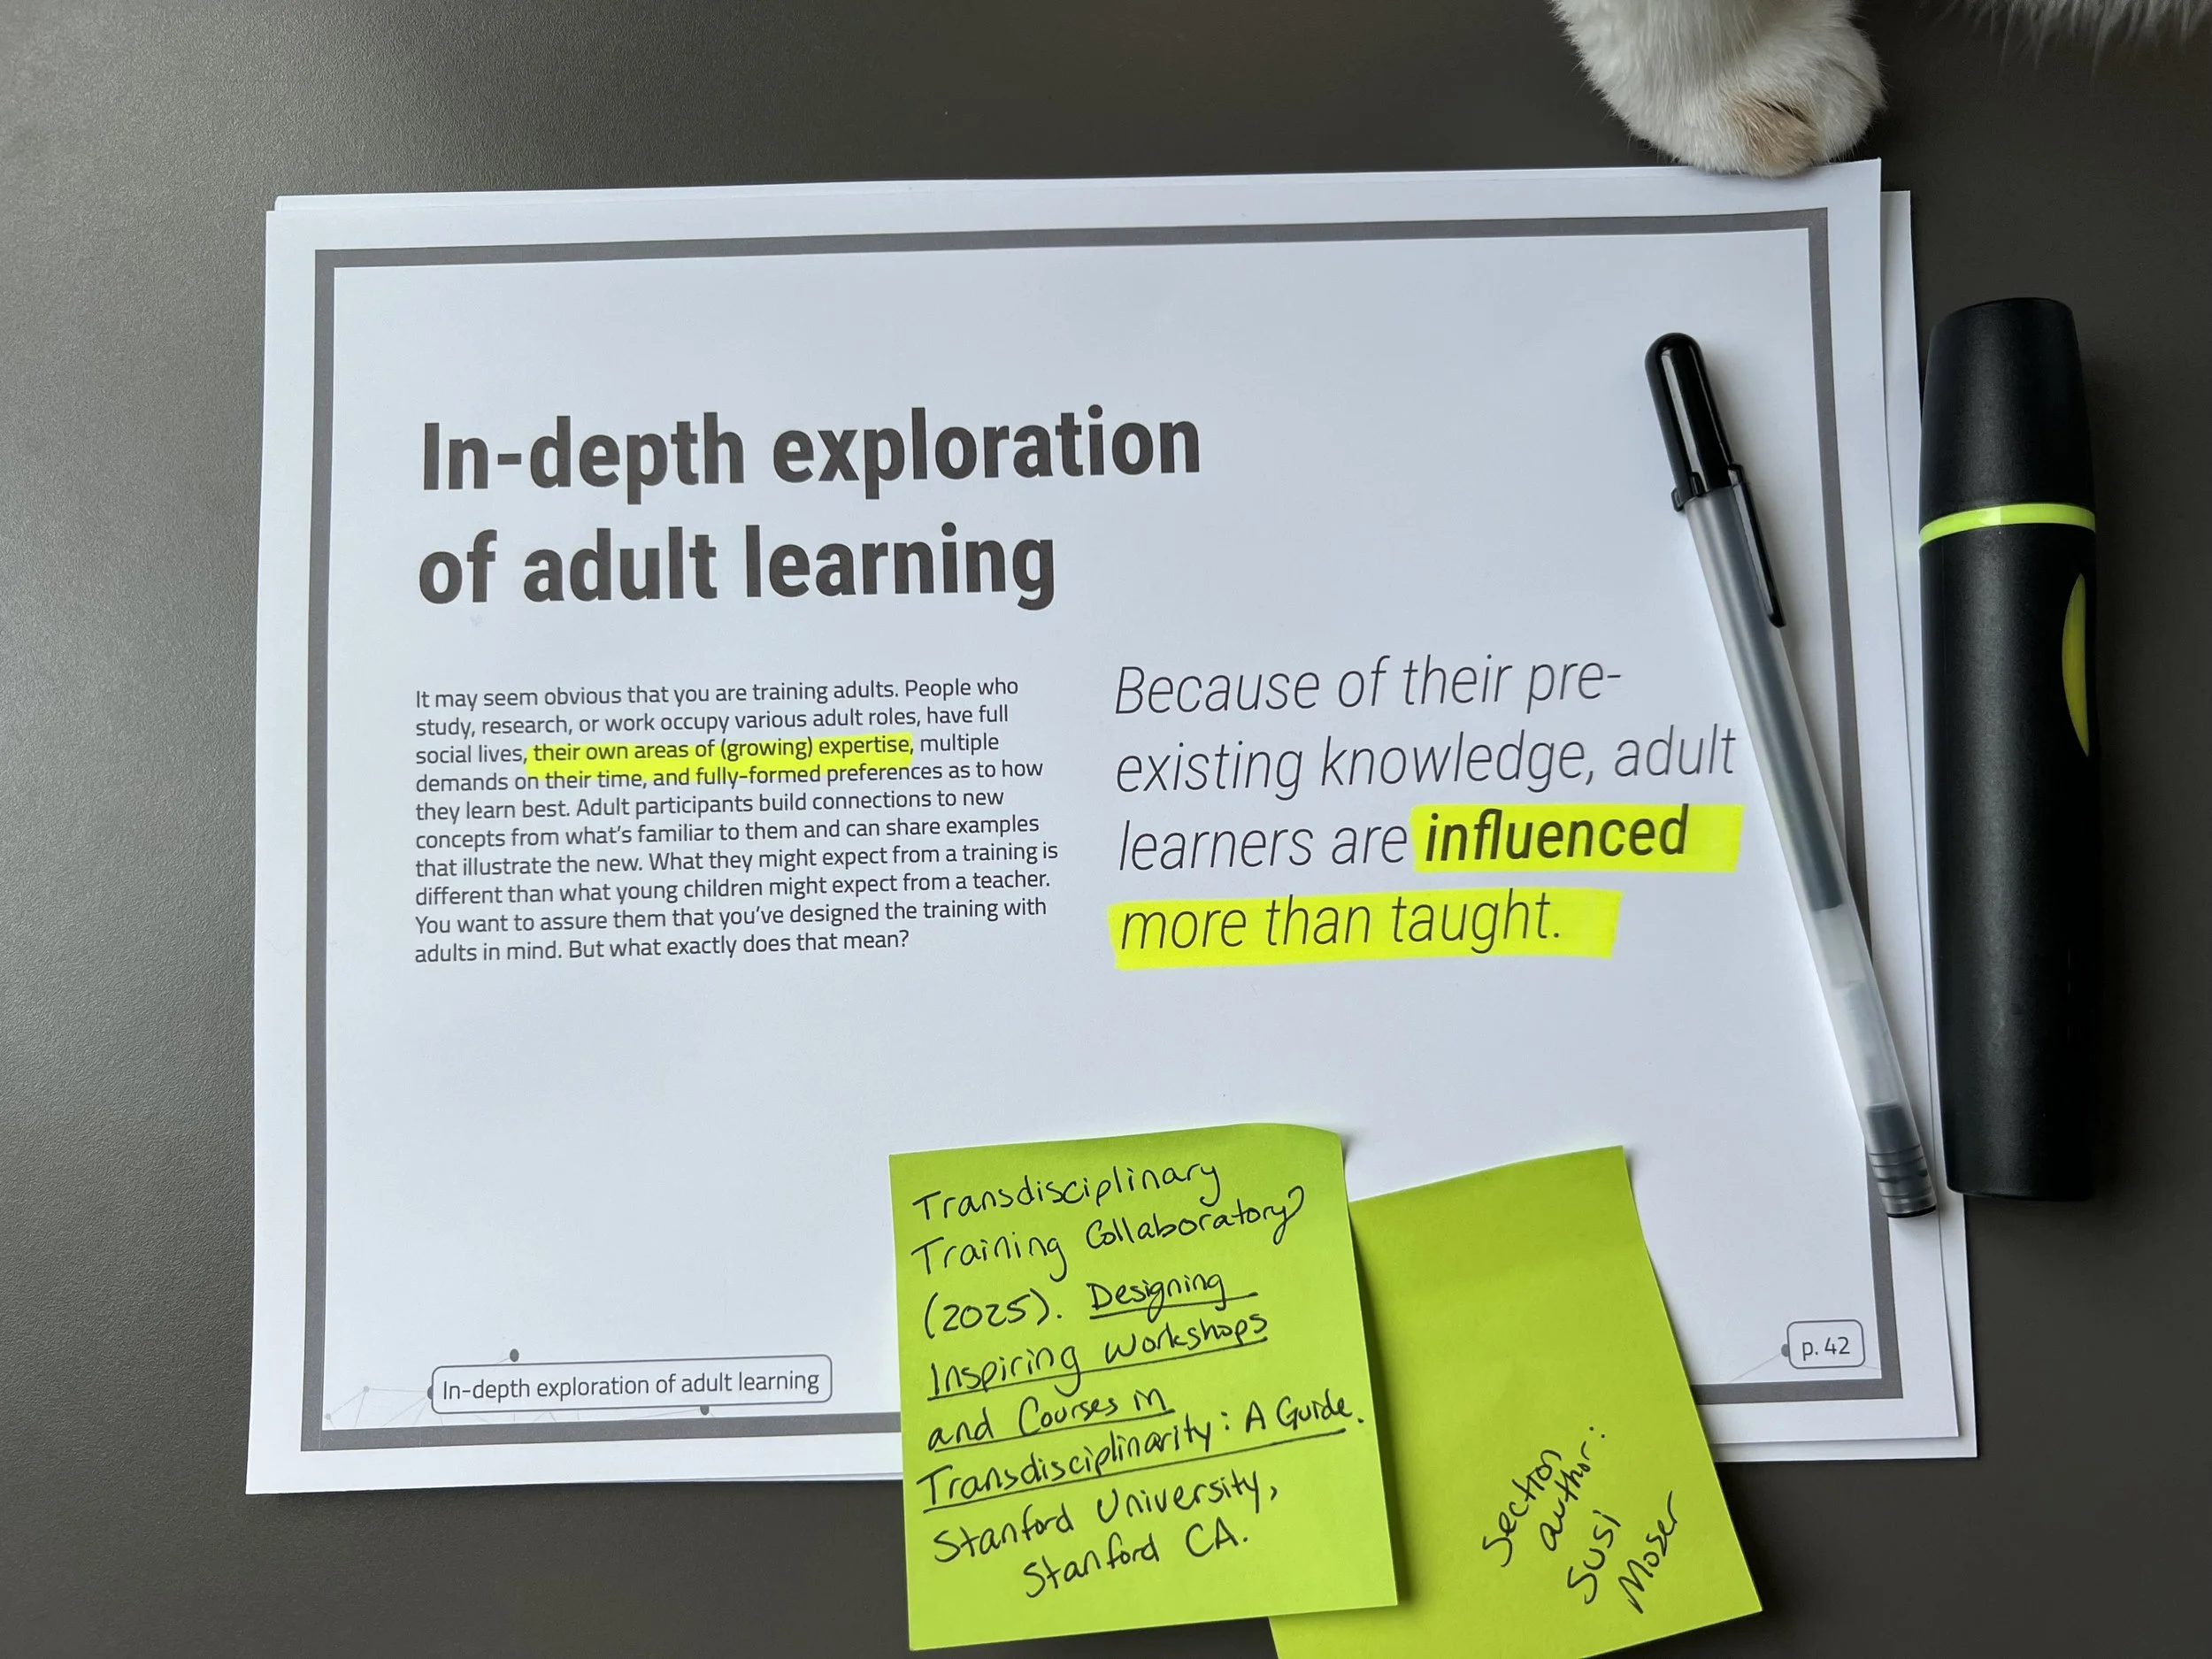 In-depth exploration
of adult learning
It may seem obvious that you are training adults. People who
study, research, or work occupy various adult roles, have full
social lives, their own areas of (growing) expertise, multiple
demands on their time, and fully-formed preferences as to how
they learn best. Adult participants build connections to new
concepts from what's familiar to them and can share examples
that illustrate the new. What they might expect from a training is
different than what young children might expect from a teacher.
You want to assure them that you've designed the training with
adults in mind. But what exactly does that mean?
Because of their pre-
existing knowledge, adult
learners are influenced
more than taught.
Transdisciplinary
Training Collaboratory
(2025). Designing
Inspiring Workshops
and Courses in
Transdisciplinarity: A Guide.
Stanford University,
Stanford CA.
Section
author:
Susi
Moser
In-depth exploration of adult learning
p. 42